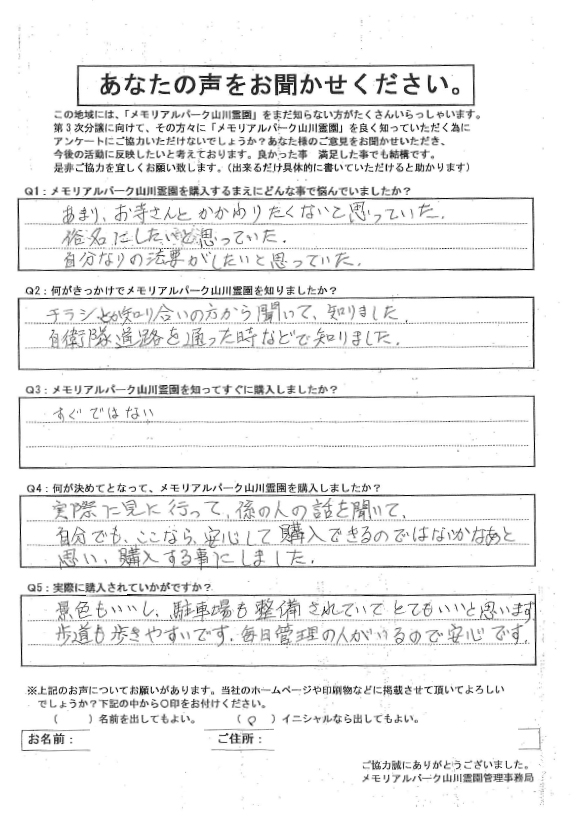 あなたの声をお聞かせください。
この地域には、「メモリアルパーク山川霊園」をまだ知らない方がたくさんいらっしゃいます。
第3次分譲に向けて、その方々に「メモリアルパーク山川霊園」を良く知っていただく為に
アンケートにご協力いただけないでしょうか？あなた様のご意見をお聞かせいただき、
今後の活動に反映したいと考えております。良かった事　満足した事でも結構です。
是非ご協力を宜しくお願い致します。（出来るだけ具体的に書いていただけると助かります）
Q1：メモリアルパーク山川霊園を購入するまえにどんな事で悩んでいましたか？
あまり、お寺さんとかかわりたくないと思っていた。
俗名にしたいと思っていた。
自分なりの法要がしたいと思っていた。
Q2：何がきっかけでメモリアルパーク山川霊園を知りましたか？
チラシとか知り合いの方から聞いて、知りました。
自衛隊道路を通った時などで知りました。
Q3：メモリアルパーク山川霊園を知ってすぐに購入しましたか？
すぐではない
Q4：何が決めてとなって、メモリアルパーク山川霊園を購入しましたか？
実際に見に行って、係の人の話を聞いて、
自分でも、ここなら、安心して購入できるのではないかなあと
思い、購入する事にしました。
Q5：実際に購入されていかがですか？
景色もいいし、駐車場も整備されていてとてもいいと思います
歩道も歩きやすいです。毎日管理の人がいるので安心です。
※上記のお声についてお願いがあります。当社のホームページや印刷物などに掲載させて頂いてよろしい
でしょうか？下記の中から〇印をお付けください。
（　　）名前を出してもよい。　（ 〇 ）イニシャルなら出してもよい。
お名前：　ご住所：
ご協力誠にありがとうございました。
メモリアルパーク山川霊園管理事務局